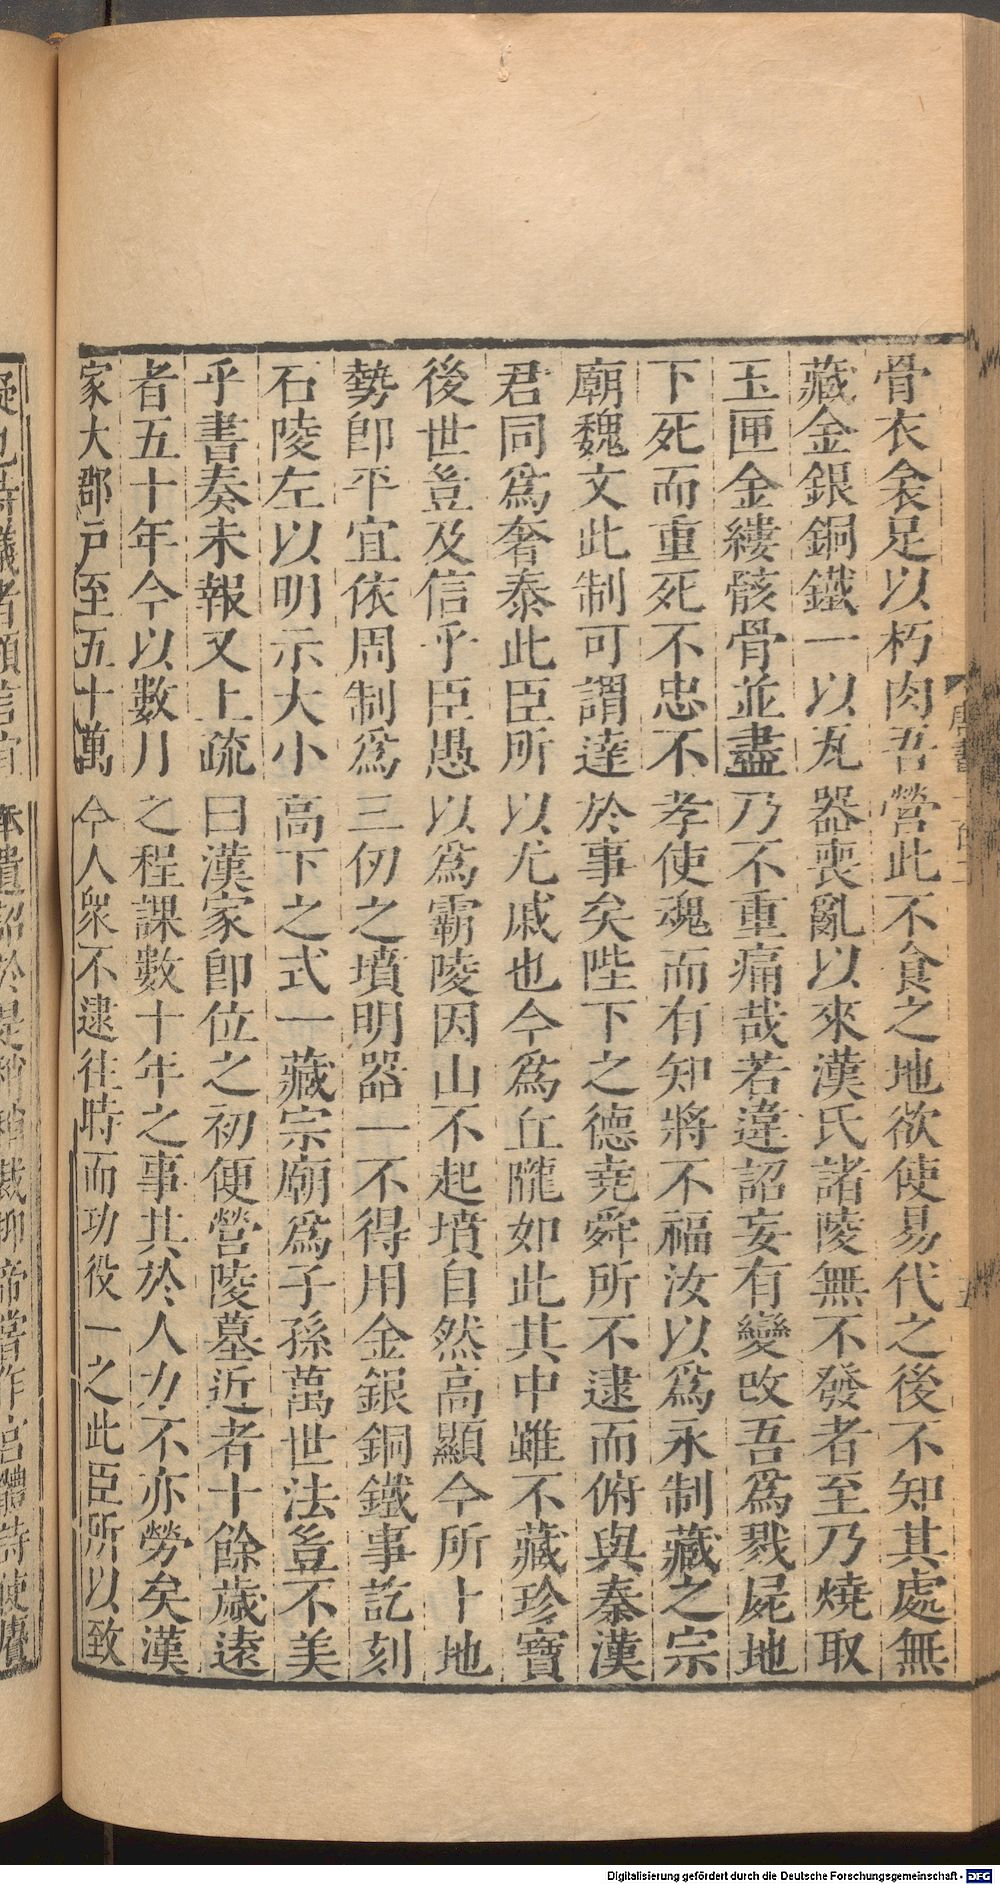 骨衣衾足以朽肉吾營此不食之地欲使易代之後不知其處無
藏金銀銅鐵一以瓦器喪亂以來漢氏諸陵無不發者至乃燒取
玉匣金縷骸骨並盡乃不重痛哉若違詔妄有變改吾爲戮屍地
下死而重死不忠不孝使魂而有知將不福汝以爲永制藏之宗
廟魏文此制可謂達於事矣陛下之德堯舜所不逮而俯與秦漢
君同爲奢泰此臣所以尤戚也今爲丘隴如此其中雖不藏珍寶
後世豈及信乎臣愚以爲霸陵因山不起墳自然高顯今所卜地
勢卽平宜依周制爲三仞之墳明器一不得用金銀銅鐵事訖刻
石陵左以明示大小高下之式一藏宗廟爲子孫萬世法豈不美
乎書奏未報又上疏曰漢家卽位之初便營陵墓近者十餘歲遠
者五十年今以數月之程課數十年之事其於人力不亦勞矣漢
家大郡戶至五十萬今人衆不逮往時而功役一之此臣所以致
唐書
疑也時議者願信宜奉遺詔於是稍稍裁抑帝嘗作宮體詩使賡
Digitalisierung gefördert durch die Deutsche Forschungsgemeinschaft - DFG